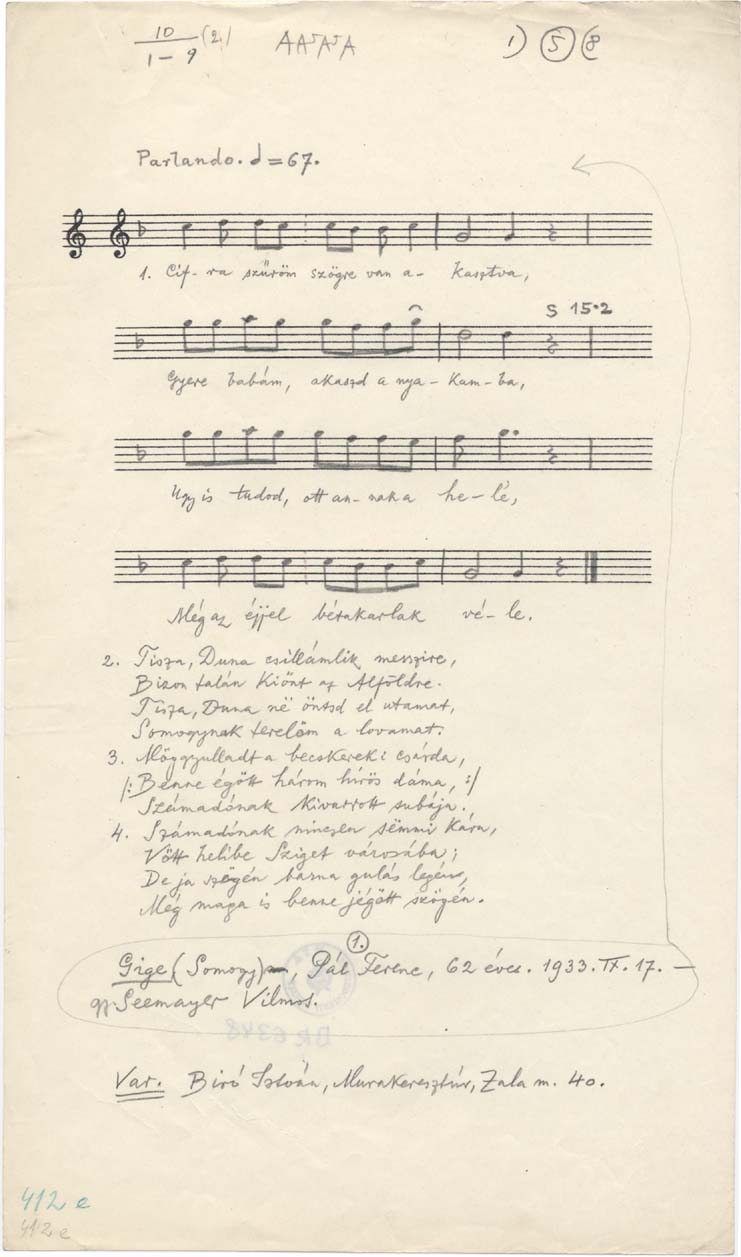 10 (2)
1–9
AA⁵A⁵A
1) 5 (8
Parlando. = 67.
1. Cif-ra szűröm szögre van a- kasztva,
S 15·2
Gyere babám, akaszd a nya- kam-ba,
Ugy is tudod, ott an-nak a he-lé,
Még az éjjel bétakarlak vé-le.
2. Tisza, Duna csillámlik messzire,
Bizon talán kiönt az Alföldre.
Tisza, Duna në öntsd el utamat,
Somogynak terelöm a lovamat.
3. Möggyulladt a becskereki csárda,
/: Benne égött három hírös dáma, :/
Számadónak kivarrott subája.
4. Számadónak nincsen sëmmi kára,
Vött helibe Sziget városába;
De ja szögén barna gulás legén,
Még maga is benne jégött szögén.
1.
Gige (Somogy), Pál Ferenc, 62 éves. 1933. IX. 17. –
gy. Seemayer Vilmos.
BR 6348
Var. Biró István, Murakeresztúr, Zala m. 40.
412 e
412 e